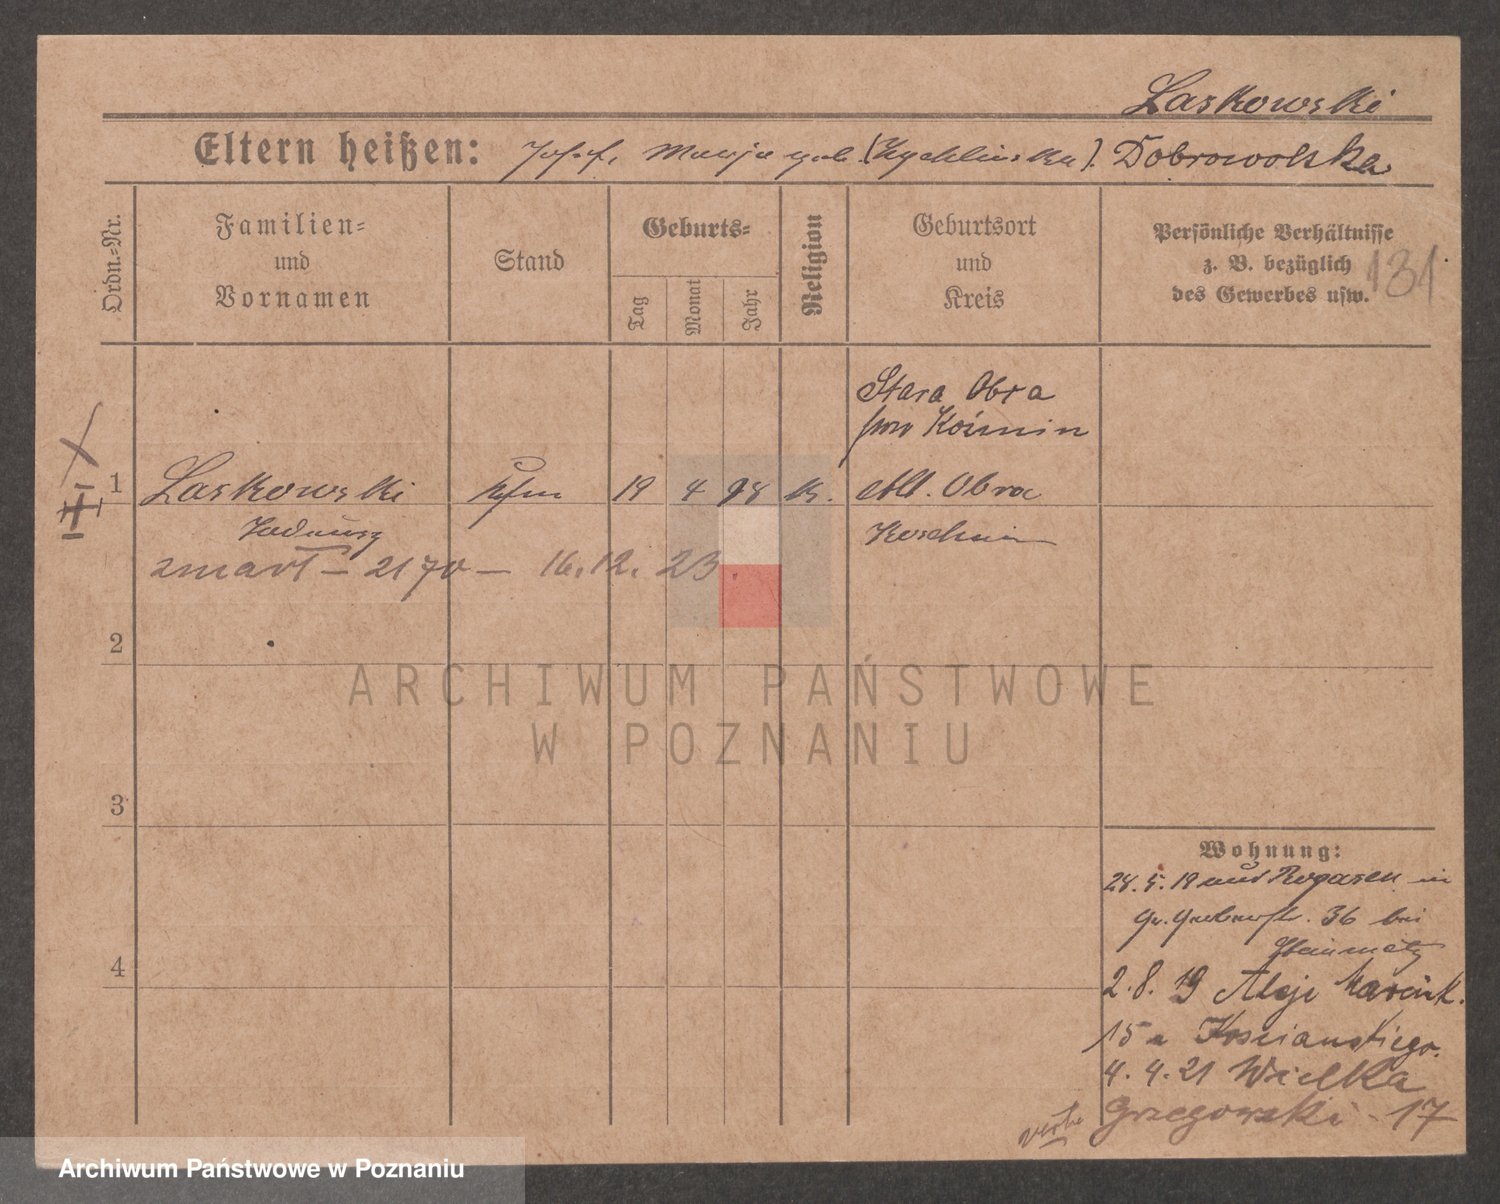 Laskowski
Eltern heißen: Josef, Marja geb. (Zychlinska). Dobrowolska
Ordn.=Nr.
Familien=
und
Vornamen
Stand
Geburts=
Tag
Monat
Jahr
Religion
Geburtsort
und
Kreis
Persönliche Verhältnisse
z. B. bezüglich
des Gewerbes usw.
131
Stara Obra
pow Koźmin
1 Laskowski Kfm 19 4 98 k. Alt. Obra
Tadeusz Koschmin
zmarł – 2170 – 16.12.23.
2
3
4
Wohnung:
28.5.19 aus Rogasen in
Gr. Gerberstr. 36 bei
Steinmetz
2.8.19 Aleje Marcink.
15 a Kościańskiego.
4.4.21 Wielka
Grzegorzski - 17
ARCHIWUM PAŃSTWOWE
W POZNANIU
Archiwum Państwowe w Poznaniu